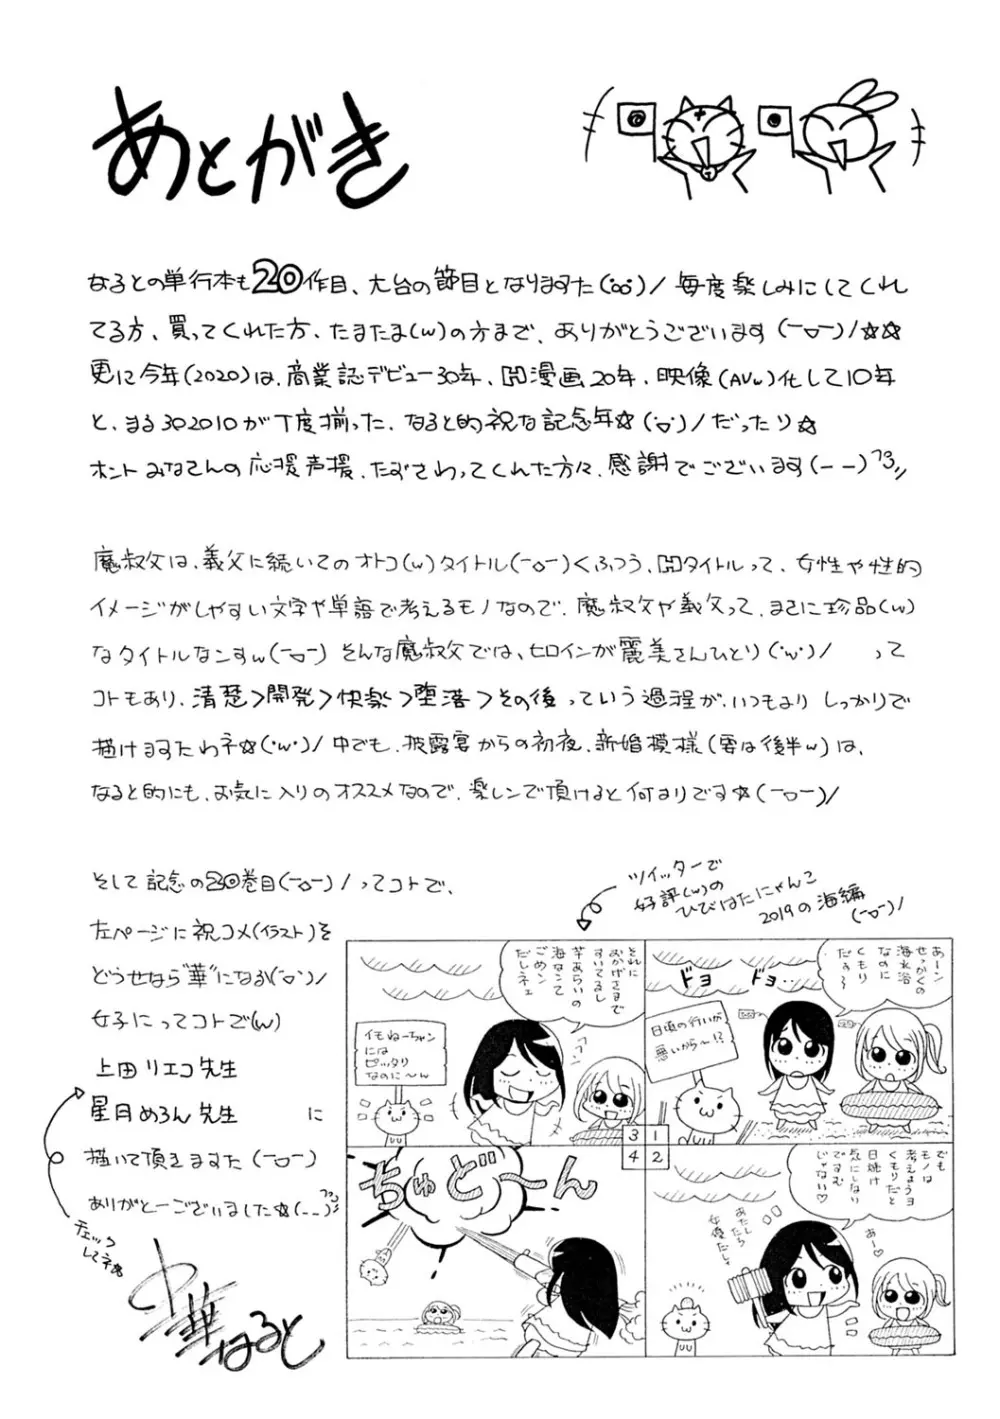 あとがき
なるとの単行本も20作目、大台の節目となりますた(°ω°)/ 毎度楽しみにしてくれ
てる方、買ってくれた方、たまたま(w)の方まで、ありがとうございます(ーロー)/☆☆
更に今年(2020)は、商業誌デビュー30年、H漫画20年、映像(AVw)化して10年
と、まる302010が丁度揃った、なると的祝な記念年☆(°▽°)/だったり☆
ホントみなさんの応援声援、たずさわってくれた方々、感謝でございます(ーー)フカ//
魔叔父は、義父に続いてのオトコ(w)タイトル(ーoー)くふつう、Hタイトルって、女性や性的
イメージがしやすい文字や単語で考えるモノなので、魔叔父や義父って、まさに珍品(w)
なタイトルなンすw(ーロー) そんな魔叔父では、ヒロインが麗美さんひとり(・w・)/ って
コトもあり、清楚>開発>快楽>堕落>その後 っていう過程が、いつもより しっかりで
描けますたわネ☆(・w・)/ 中でも、披露宴からの初夜、新婚模様(要は後半w)は、
なると的にも、お気に入りのオススメなので、楽しンで頂けると何よりです☆(ーロー)/
そして記念の20巻目(ーoー)/ってコトで、
左ページに祝コメ(イラスト)を
どうせなら"華"になる(°o°)/
女子にってコトで(w)
上田リエコ先生
星月めろん先生 に
描いて頂きますた(ーロー)
ありがとーございました☆(__)フカ
チェック
してネ☆
中華なると
ツイッターで
好評(w)の
ひびはたにゃんこ
2019の海編
(ーロー)/
あーン
せっかくの
海水浴
なのに
くもり
だぁ～
ドヨ ドヨ
日頃の行いが
悪いから～!?
1
でも
モノは
考えようヨ
くもりだと
日焼け
気にしなり
ですむ
じゃない♡
あー♡
あたしたち
女優だしょ
2
それに
おかげさまで
すいてるし
芋あらいの
海なンて
ごめンだしネェ
イモねーちゃン
には
ピッタリ
なのに～ん
3
ちゅど～ん
4